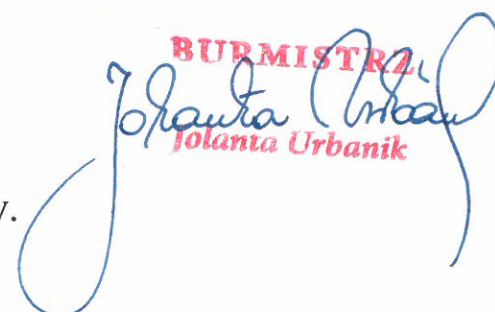 BURMISTRZ
Jolanta Urbanik
Jolanta Urbanik
y.